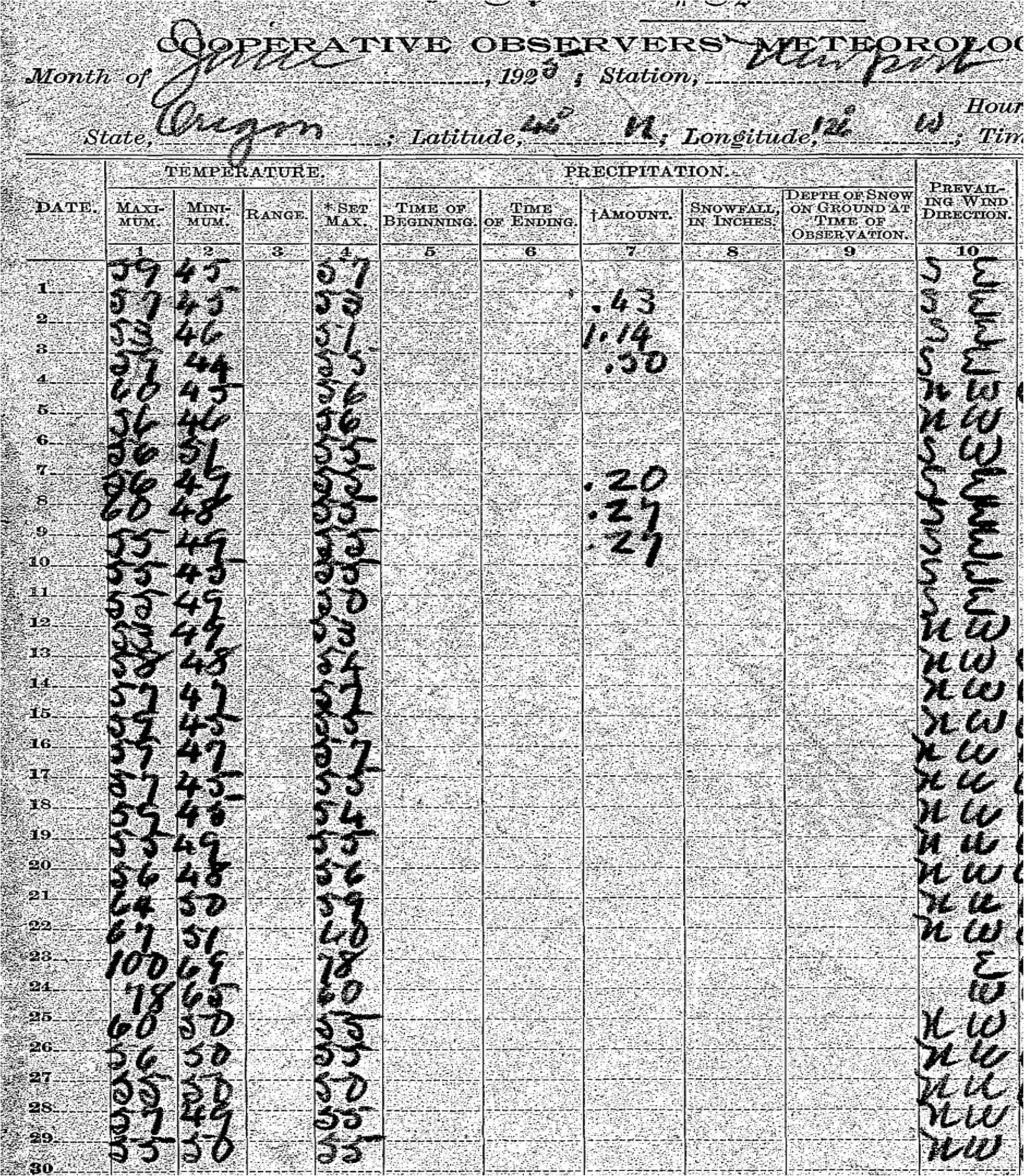 COOPERATIVE OBSERVERS' METEOROLO
Month of June, 1925; Station, Newport
Hour
State, Oregon; Latitude, N; Longitude, W; Tim
TEMPERATURE. PRECIPITATION.
DATE. MAXI-MUM. MINI-MUM. RANGE. *SET MAX. TIME OF BEGINNING. TIME OF ENDING. †AMOUNT. SNOWFALL, IN INCHES. DEPTH OF SNOW ON GROUND AT TIME OF OBSERVATION. PREVAIL-ING WIND DIRECTION.
1 2 3 4 5 6 7 8 9 10
1 59 45 57 S E
2 57 45 55 .43 S
3 46 51 1.14 S
4 57 44 55 .30 S E
5 60 45 56 N W
6 56 46 56 N W
7 56 51 55 S W
8 56 49 55 .20 S W
9 60 48 55 .27 S W
10 55 49 55 .27 S W
11 55 45 55 S W
12 55 49 50 S W
13 49 N W
14 58 48 54 N W
15 57 47 57 N W
16 59 45 55 N W
17 57 47 57 N W
18 57 45 55 N W
19 59 48 54 N W
20 55 49 55 N W
21 56 48 56 N W
22 64 50 59 N W
23 67 51 60 N W
24 100 69 78 E
25 78 65 60 W
26 60 50 55 N W
27 56 50 55 N W
28 55 50 50 N W
29 57 49 55 N W
30 55 50 55 N W